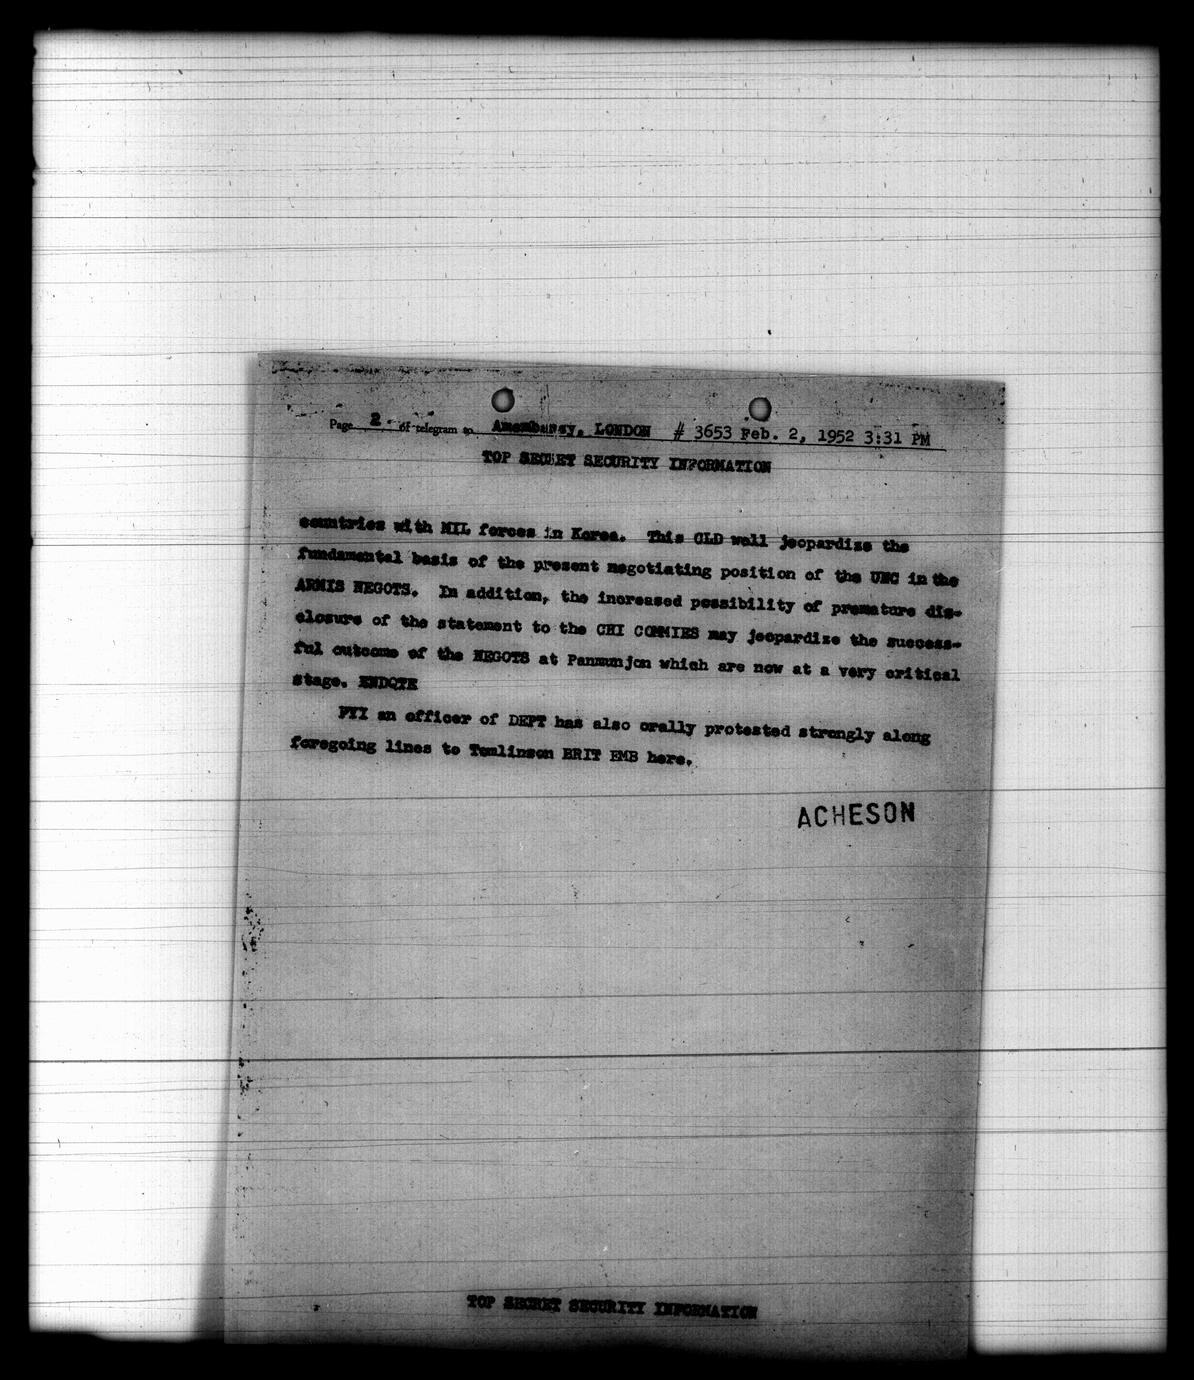 Page 2 of telegram to Amembassy, LONDON # 3653 Feb. 2, 1952 3:31 PM
TOP SECRET SECURITY INFORMATION
countries with MIL forces in Korea. This CLD well jeopardize the
fundamental basis of the present negotiating position of the UNC in the
ARMIS NEGOTS. In addition, the increased possibility of premature dis-
closure of the statement to the CHI COMMIES may jeopardize the success-
ful outcome of the NEGOTS at Panmunjon which are now at a very critical
stage. ENDQTE
FYI an officer of DEPT has also orally protested strongly along
foregoing lines to Tomlinson BRIT EMB here.
ACHESON
TOP SECRET SECURITY INFORMATION